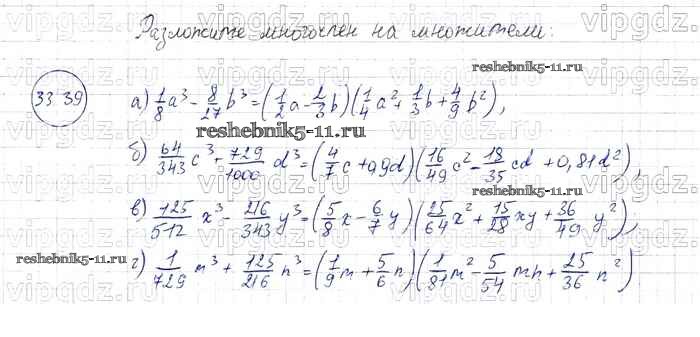 Разложите многочлен на множители:
33.39
а) 1/8 a³ - 8/27 b³ = (1/2 a - 2/3 b)(1/4 a² + 1/3 b + 4/9 b²),
reshebnik5-11.ru
reshebnik5-11.ru
б) 64/343 c³ + 729/1000 d³ = (4/7 c + 0,9d)(16/49 c² - 18/35 cd + 0,81d²),
в) 125/512 x³ - 216/343 y³ = (5/8 x - 6/7 y)(25/64 x² + 15/28 xy + 36/49 y²),
reshebnik5-11.ru
г) 1/729 m³ + 125/216 n³ = (1/9 m + 5/6 n)(1/81 m² - 5/54 mn + 25/36 n²)
vipgdz.ru